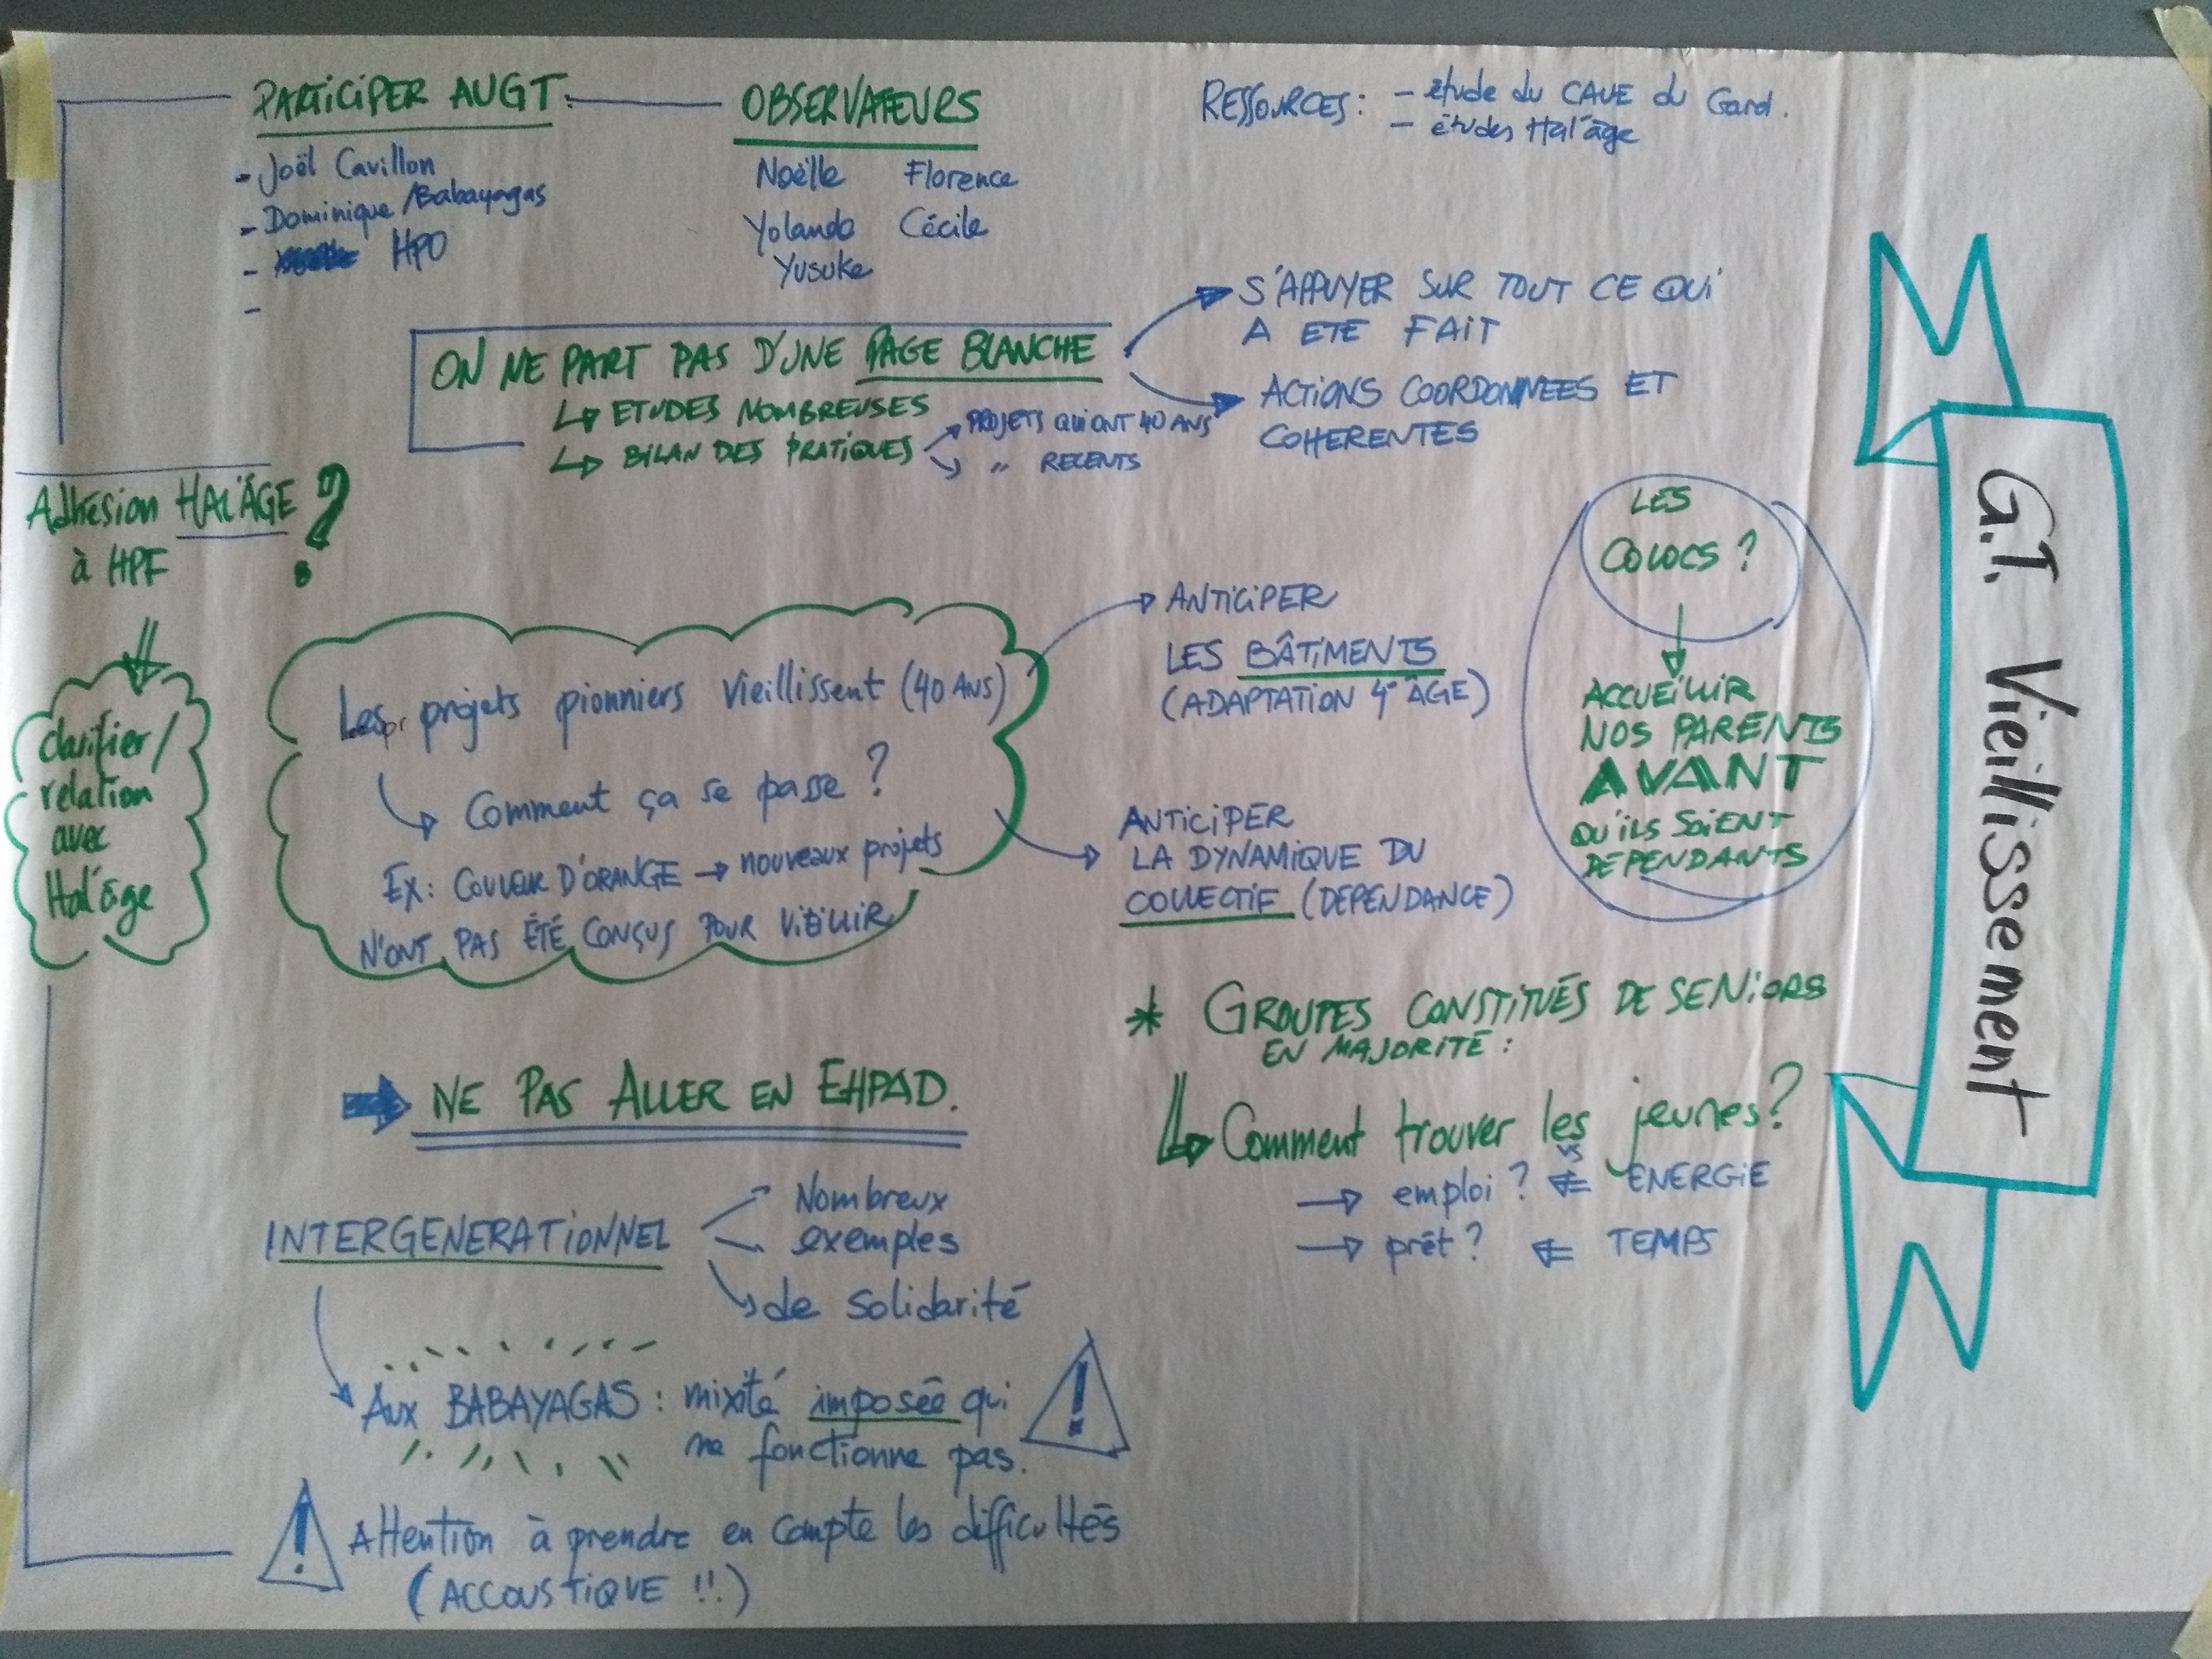 PARTICIPER AU GT:
- Joël Cavillon
- Dominique/Babayagas
- HPO
-
OBSERVATEURS
Noëlle Florence
Yolanda Cécile
Yusuke
RESSOURCES: - étude du CAUE du Gard.
- études Hal'âge
ON NE PART PAS D'UNE PAGE BLANCHE
↳ ETUDES NOMBREUSES
↳ BILAN DES PRATIQUES
PROJETS QUI ONT 40 ANS
" RECENTS
S'APPUYER SUR TOUT CE QUI
A ETE FAIT
ACTIONS COORDONNEES ET
COHERENTES
Adhésion HAL'ÂGE ?
à HPF
clarifier/
relation
avec
Hal'âge
Les projets pionniers vieillissent (40 ANS)
Comment ça se passe ?
EX: COULEUR D'ORANGE → nouveaux projets
N'ONT PAS ÉTÉ CONÇUS POUR VIEILLIR
ANTICIPER
LES BÂTIMENTS
(ADAPTATION 4° ÂGE)
ANTICIPER
LA DYNAMIQUE DU
COLLECTIF (DEPENDANCE)
LES
COLOCS ?
ACCUEILLIR
NOS PARENTS
AVANT
QU'ILS SOIENT
DEPENDANTS
G.T. Vieillissement
* GROUPES CONSTITUÉS DE SENIORS
EN MAJORITÉ :
↳ Comment trouver les jeunes?
vs
→ emploi ? ⇐ ENERGIE
→ prêt ? ⇐ TEMPS
➡ NE PAS ALLER EN EHPAD.
INTERGENERATIONNEL
Nombreux
exemples
de solidarité
Aux BABAYAGAS : mixité imposée qui
ne fonctionne pas. !
! Attention à prendre en compte les difficultés
(ACCOUSTIQUE !!)